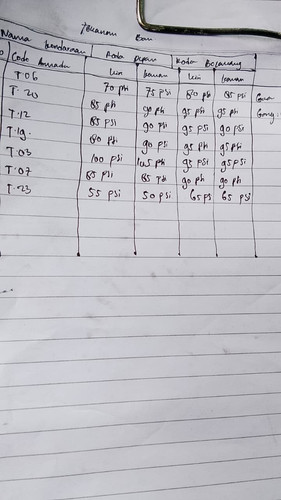 Tekanan Ban
Nama kendaraan Roda Depan Roda Belakang
Code Armada kiri kanan kiri kanan
T. 06 70 psi 75 psi 80 psi 85 psi
T. 20 85 psi 90 psi 95 psi 95 psi
T. 12 85 psi 90 psi 95 psi 90 psi
T. 19. 80 psi 90 psi 90 psi 95 psi
T. 03 100 psi 105 psi 95 psi 95 psi
T. 07 85 psi 85 psi 90 psi 90 psi
T. 23 55 psi 50 psi 65 psi 65 psi